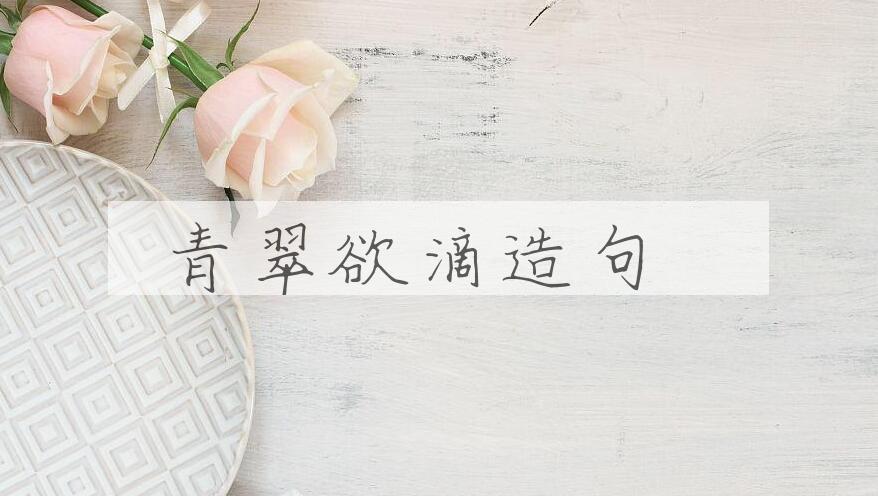 青翠欲滴造句